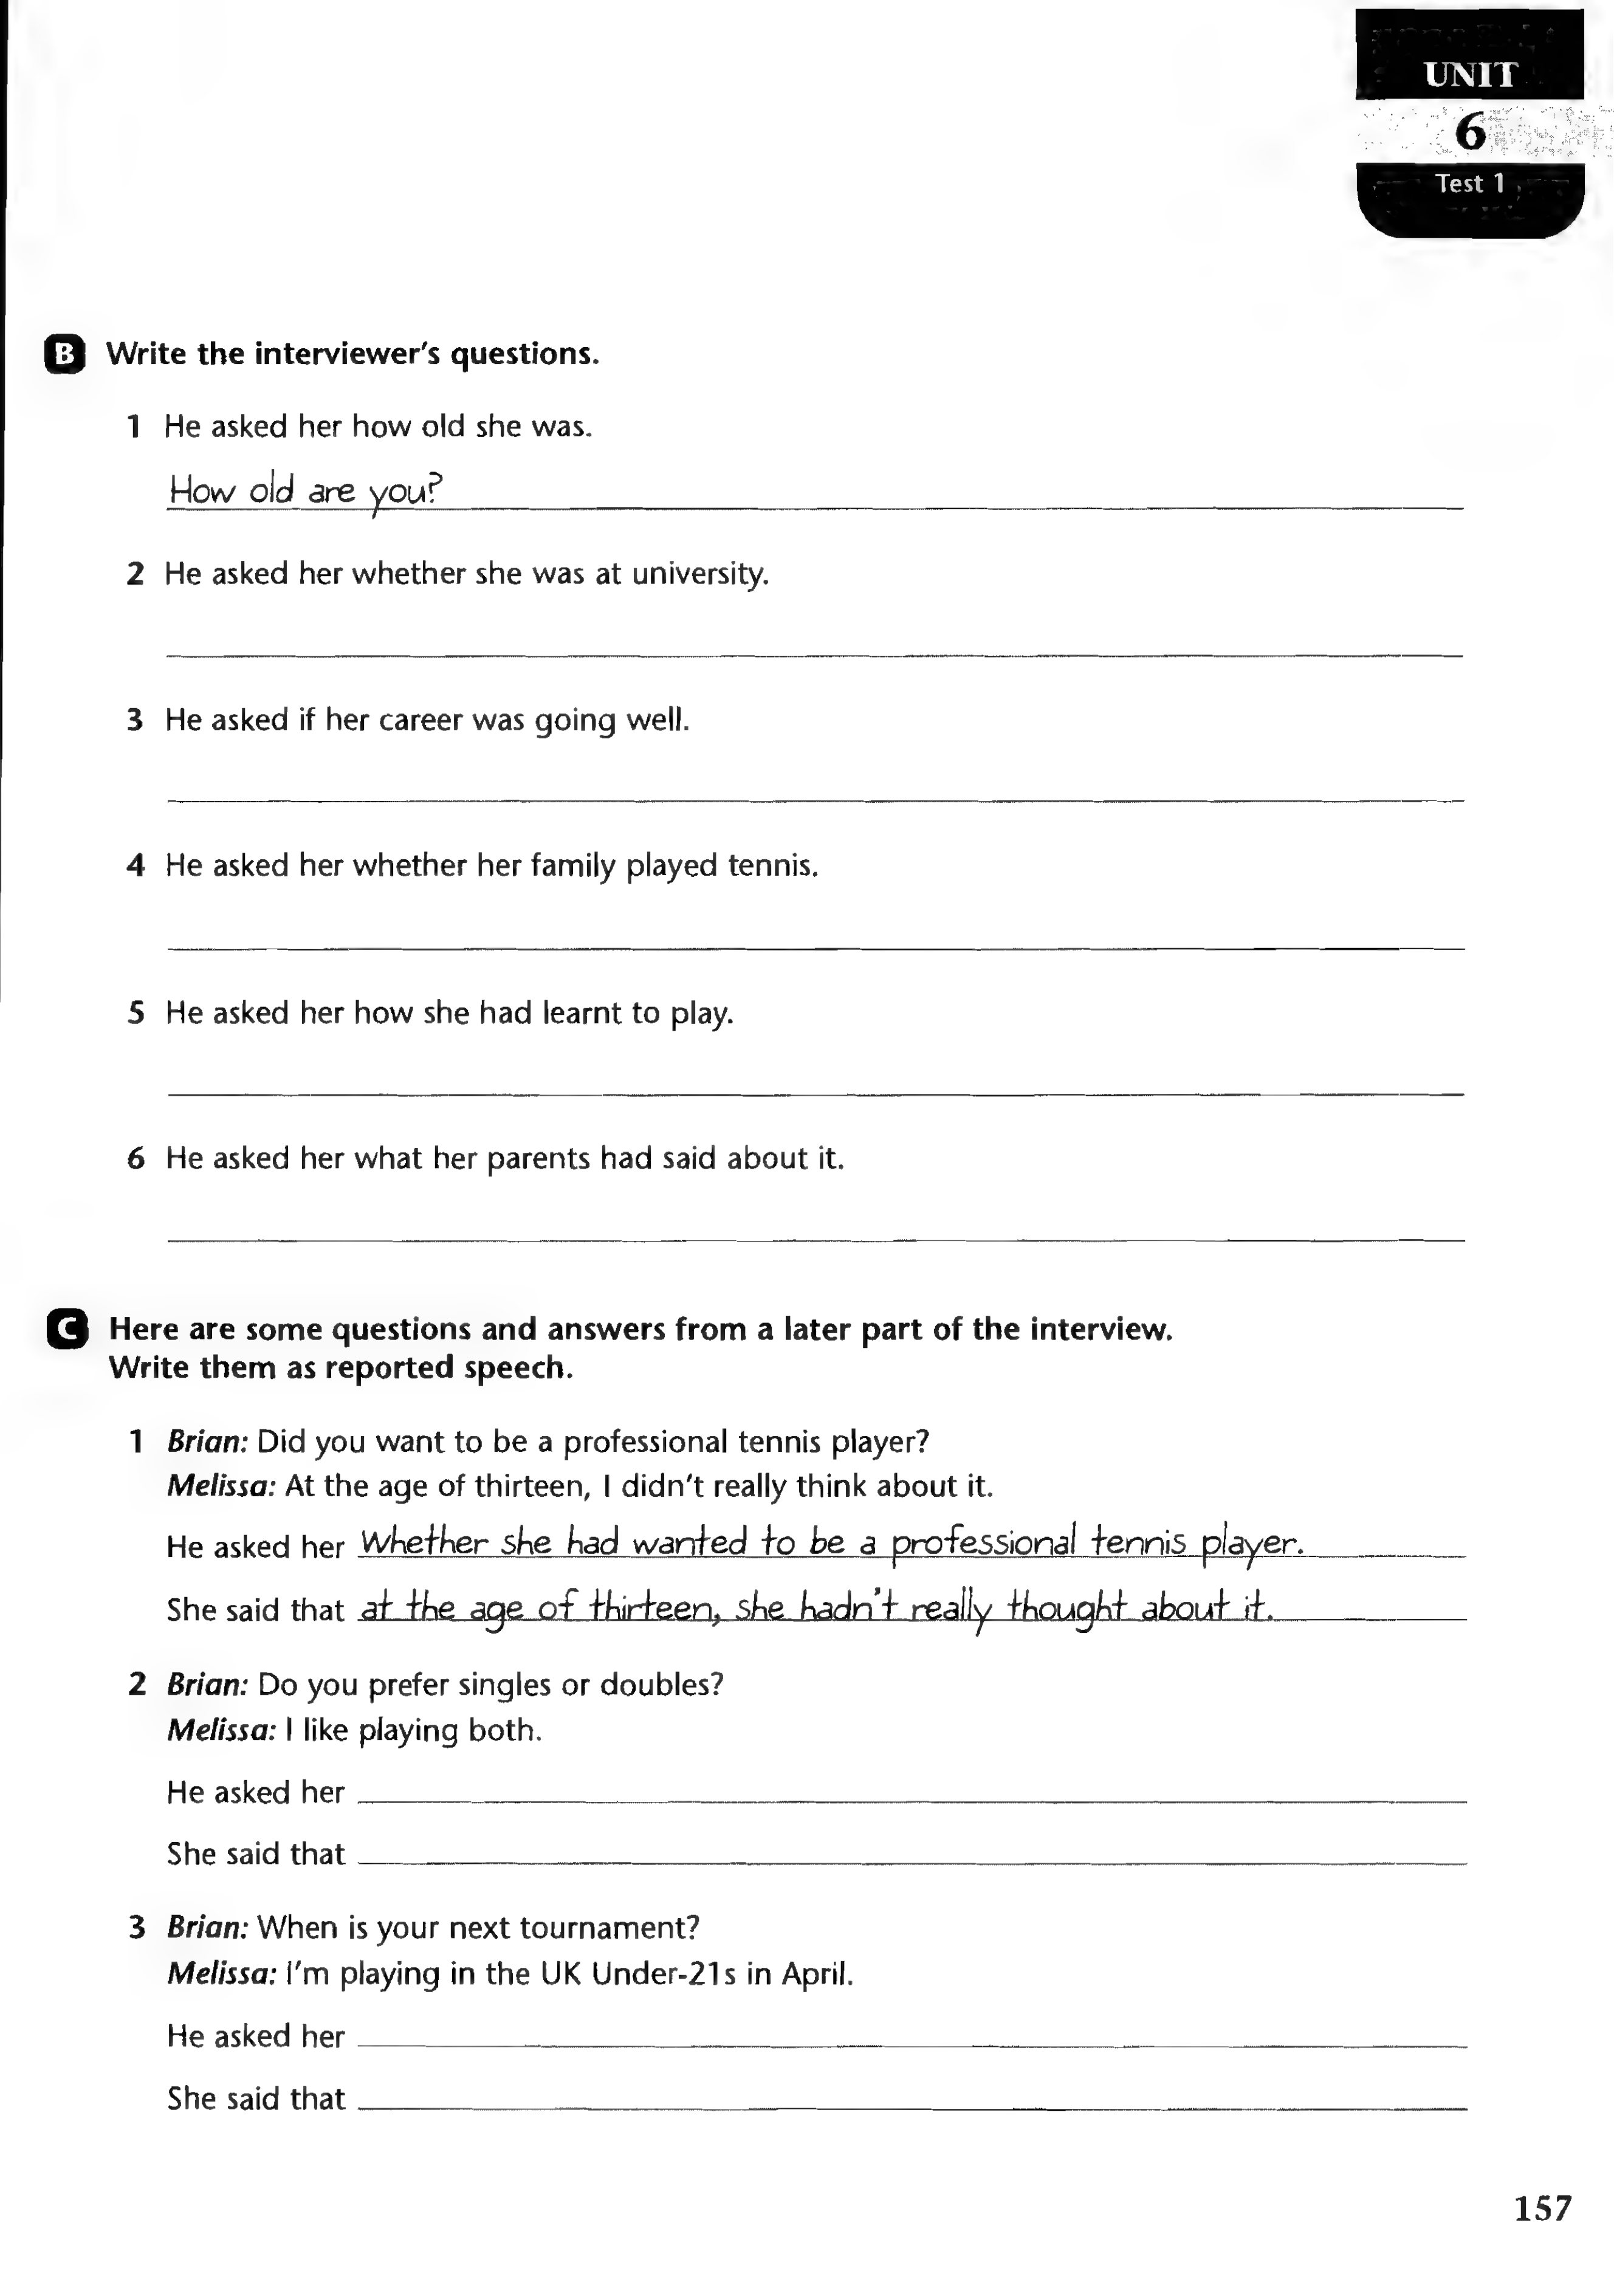 UNIT
6
Test 1
B Write the interviewer's questions.
1 He asked her how old she was.
How old are you?
2 He asked her whether she was at university.
3 He asked if her career was going well.
4 He asked her whether her family played tennis.
5 He asked her how she had learnt to play.
6 He asked her what her parents had said about it.
C Here are some questions and answers from a later part of the interview.
Write them as reported speech.
1 Brian: Did you want to be a professional tennis player?
Melissa: At the age of thirteen, I didn't really think about it.
He asked her whether she had wanted to be a professional tennis player.
She said that at the age of thirteen, she hadn't really thought about it.
2 Brian: Do you prefer singles or doubles?
Melissa: I like playing both.
He asked her
She said that
3 Brian: When is your next tournament?
Melissa: I'm playing in the UK Under-21s in April.
He asked her
She said that
157